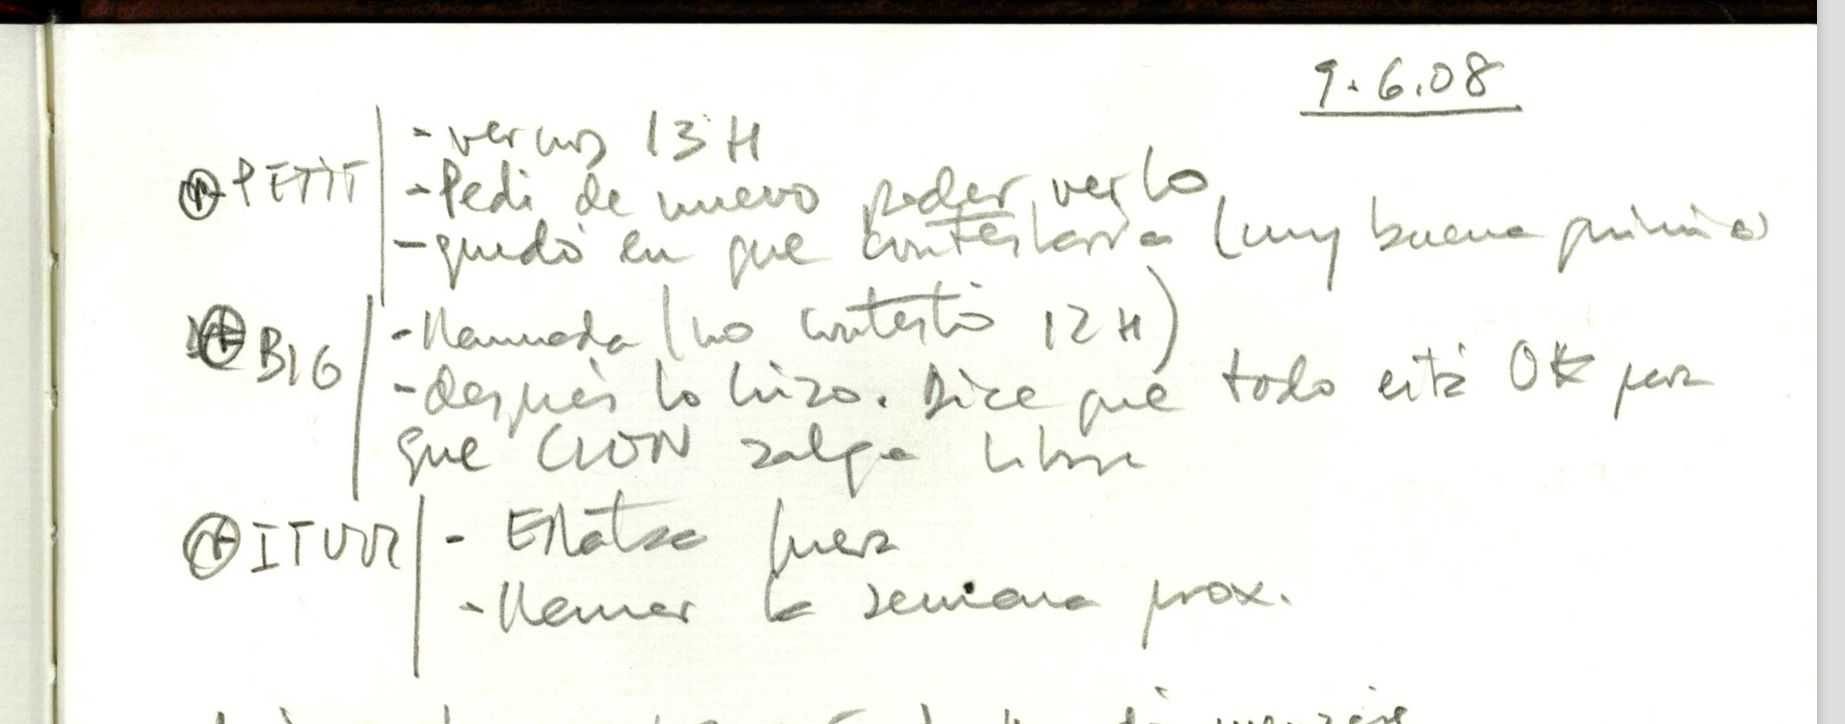 9.6.08
PETIT - vernos 13H
- Pedí de nuevo poder verlo
- quedó en que contestaría (muy buena
BIG - Llamada (no contestó 12H)
- después lo hizo. Dice que todo está OK para
que CLON salga libre
ITURR - fuera
- Llamar la semana prox.